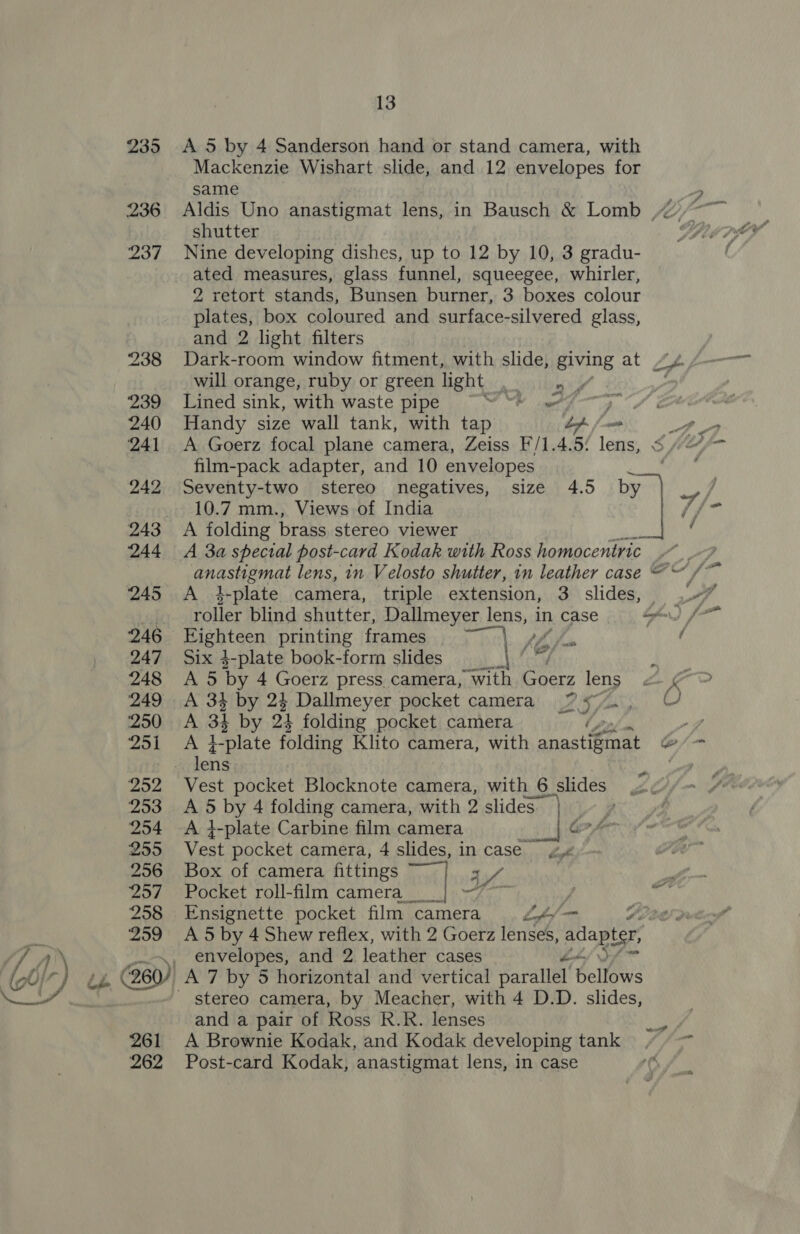 13
235 A 5 by 4 Sanderson hand or stand camera, with
Mackenzie Wishart slide, and 12 envelopes for
same
236 Aldis Uno anastigmat lens, in Bausch & Lomb
shutter
237 Nine developing dishes, up to 12 by 10, 3 gradu-
ated measures, glass funnel, squeegee, whirler,
2 retort stands, Bunsen burner, 3 boxes colour
plates, box coloured and surface-silvered glass,
and 2 light filters
238 Dark-room window fitment, with slide, giving at
will orange, ruby or green light
239 Lined sink, with waste pipe
240 Handy size wall tank, with tap
241 A Goerz focal plane camera, Zeiss F/1.4.5. lens,
film-pack adapter, and 10 envelopes
242 Seventy-two stereo negatives, size 4.5 by
10.7 mm., Views of India
243 A folding brass stereo viewer
244 A 3a special post-card Kodak with Ross homocentric
anastigmat lens, in Velosto shutter, in leather case
245 A ½-plate camera, triple extension, 3 slides,
roller blind shutter, Dallmeyer lens, in case
246 Eighteen printing frames
247 Six ½-plate book-form slides
248 A 5 by 4 Goerz press camera, with Goerz lens
249 A 3½ by 2½ Dallmeyer pocket camera
250 A 3½ by 2½ folding pocket camera
251 A ¼-plate folding Klito camera, with anastigmat
lens
252 Vest pocket Blocknote camera, with 6 slides
253 A 5 by 4 folding camera, with 2 slides
254 A ¼-plate Carbine film camera
255 Vest pocket camera, 4 slides, in case
256 Box of camera fittings
257 Pocket roll-film camera
258 Ensignette pocket film camera
259 A 5 by 4 Shew reflex, with 2 Goerz lenses, adapter,
envelopes, and 2 leather cases
260 A 7 by 5 horizontal and vertical parallel bellows
stereo camera, by Meacher, with 4 D.D. slides,
and a pair of Ross R.R. lenses
261 A Brownie Kodak, and Kodak developing tank
262 Post-card Kodak, anastigmat lens, in case